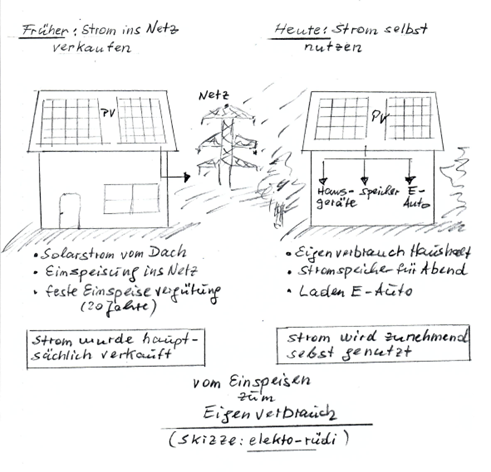 Früher: Strom ins Netz
verkaufen
Heute: Strom selbst
nutzen
PV
Netz
PV
Haus-
geräte
Speicher
E-
Auto
• Solarstrom vom Dach
• Einspeisung ins Netz
• feste Einspeisevergütung
(20 Jahre)
• Eigenverbrauch Haushalt
• Stromspeicher für Abend
• Laden E-Auto
Strom wurde haupt-
sächlich verkauft
Strom wird zunehmend
selbst genutzt
vom Einspeisen
zum
Eigenverbrauch
(Skizze: elekto-rüdi)